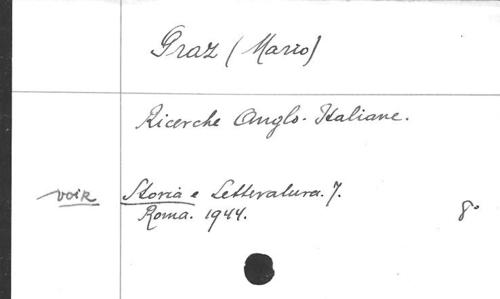 Praz (Mario)
Ricerche Anglo-Italiane.
voir Storia e Letteratura. 7.
Roma. 1944. 8°